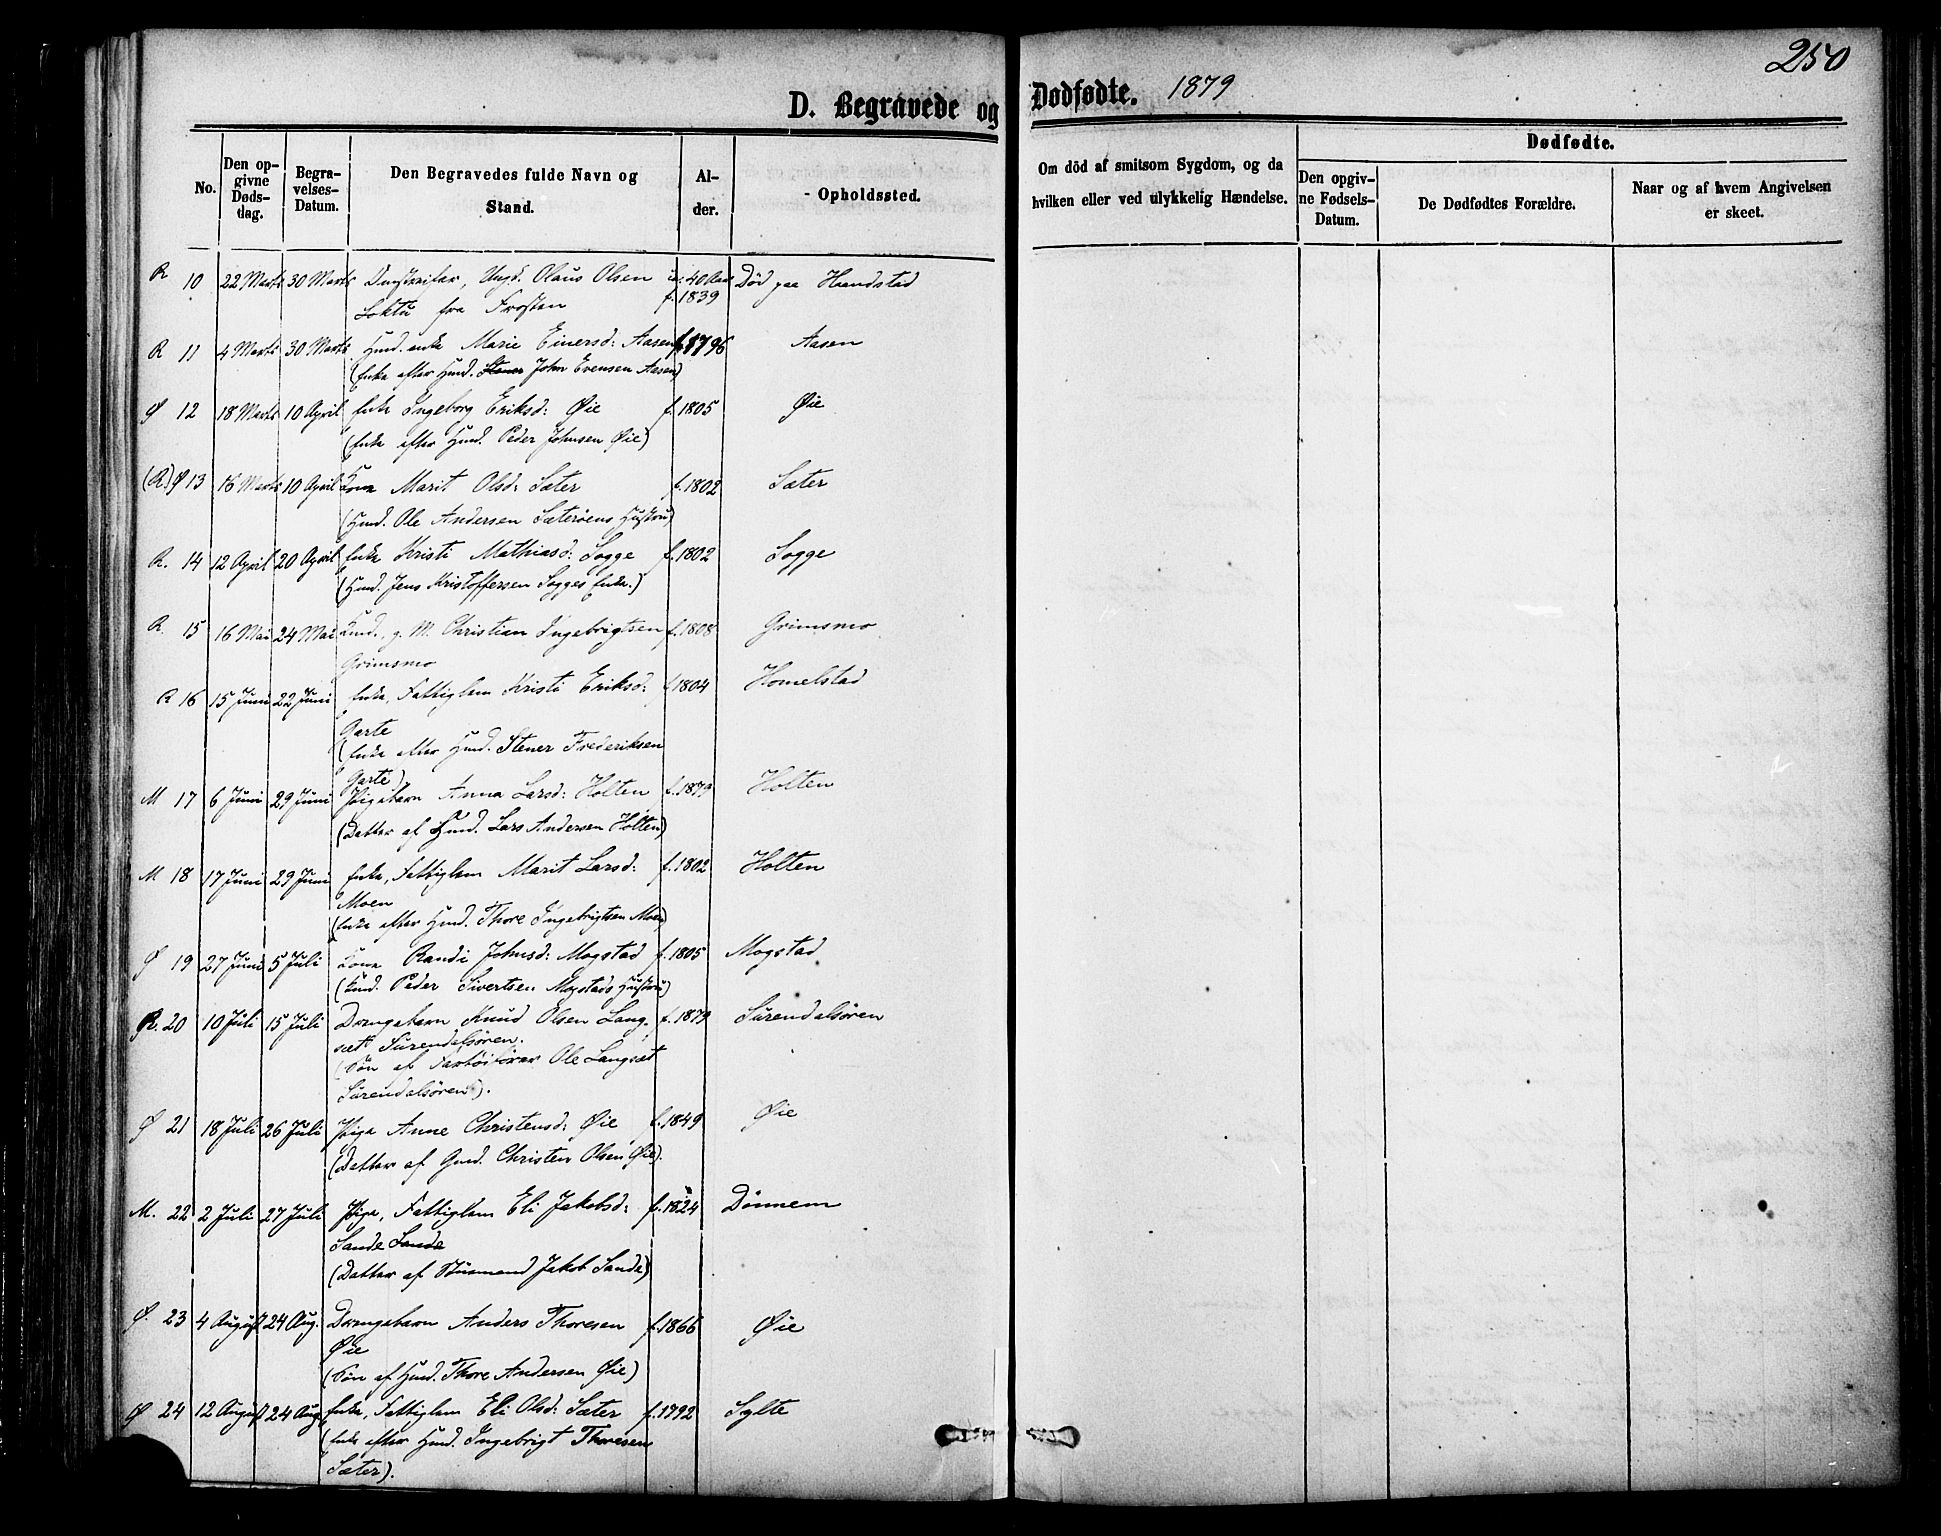 250
D. Begravede og Dødfødte. 1879
No.
Den op-
givne
Døds-
dag.
Begra-
velses-
Datum.
Den Begravedes fulde Navn og
Stand.
Al-
der.
Opholdssted.
Om död af smitsom Sygdom, og da
hvilken eller ved ulykkelig Hændelse.
Dødfødte.
Den opgiv-
ne Fødsels-
Datum.
De Dødfødtes Forældre.
Naar og af hvem Angivelsen
er skeet.
R 10 22 Marts 30 Marts Olaus Olsen 40 Aar Død paa Handstad
fra Frosten f. 1839
R 11 4 Marts 30 Marts Kmd. enke Marie Einersd: Aasen f. 1796 Aasen
(Enke efter Kmd. Stener John Evensen Aasen)
Ø 12 18 Marts 10 April Enke Ingeborg Eriksd: Øie f. 1805 Øie
(Enke efter Kmd. Peder Johnsen Øie)
(R) Ø 13 16 Marts 10 April Kone Marit Olsd: Sæter f. 1802 Sæter
(Kmd. Ole Andersen Sæterøens Hustru)
R. 14 12 April 20 April Enke Kristi Mathiasd: Sogge f. 1802 Sogge
(Kmd. Jens Kristoffersen Sogges Enke.)
R. 15 16 Mai 24 Mai Kmd., g. M. Christian Ingebrigtsen f. 1808 Grimsmo
Grimsmo
R 16 15 Juni 22 Juni Enke, Fattiglem Kristi Eriksd: f. 1804 Homelstad
Garte
(Enke efter Kmd. Stener Frederiksen
Garte)
M 17 6 Juni 29 Juni Pigebarn Anna Larsd: Holten f. 1879 Holten
(Datter af Kmd. Lars Andersen Holten)
M 18 17 Juni 29 Juni Enke, Fattiglem Marit Larsd: f. 1802 Holten
Moen
(Enke efter Kmd. Thore Ingebrigtsen Moen)
Ø 19 27 Juni 5 Juli Kone Randi Johnsd: Mogstad f. 1805 Mogstad
(Kmd. Peder Sivertsen Mogstads Hustru)
R. 20 10 Juli 15 Juli Drengebarn Knud Olsen Lang- f. 1879 Surendalsøren
sæt Surendalsøren.
(Søn af Ole Langsæt
Surendalsøren).
Ø 21 18 Juli 26 Juli Pige Anne Christensd: Øie f. 1849 Øie
(Datter af Gmd. Christen Olsen Øie).
M. 22 2 Juli 27 Juli Pige, Fattiglem Eli Jakobsd: f. 1824 Dønnem
Sande Sande
(Datter af Husmand Jakob Sande)
Ø. 23 4 August 24 Aug. Drengebarn Anders Thoresen f. 1866 Øie
Øie
(Søn af Kmd. Thore Andersen Øie)
Ø 24 12 August 24 Aug. Enke, Fattiglem Eli Olsd: Sæter f. 1792 Sylte
(Enke efter Kmd. Ingebrigt Thoresen
Sæter).